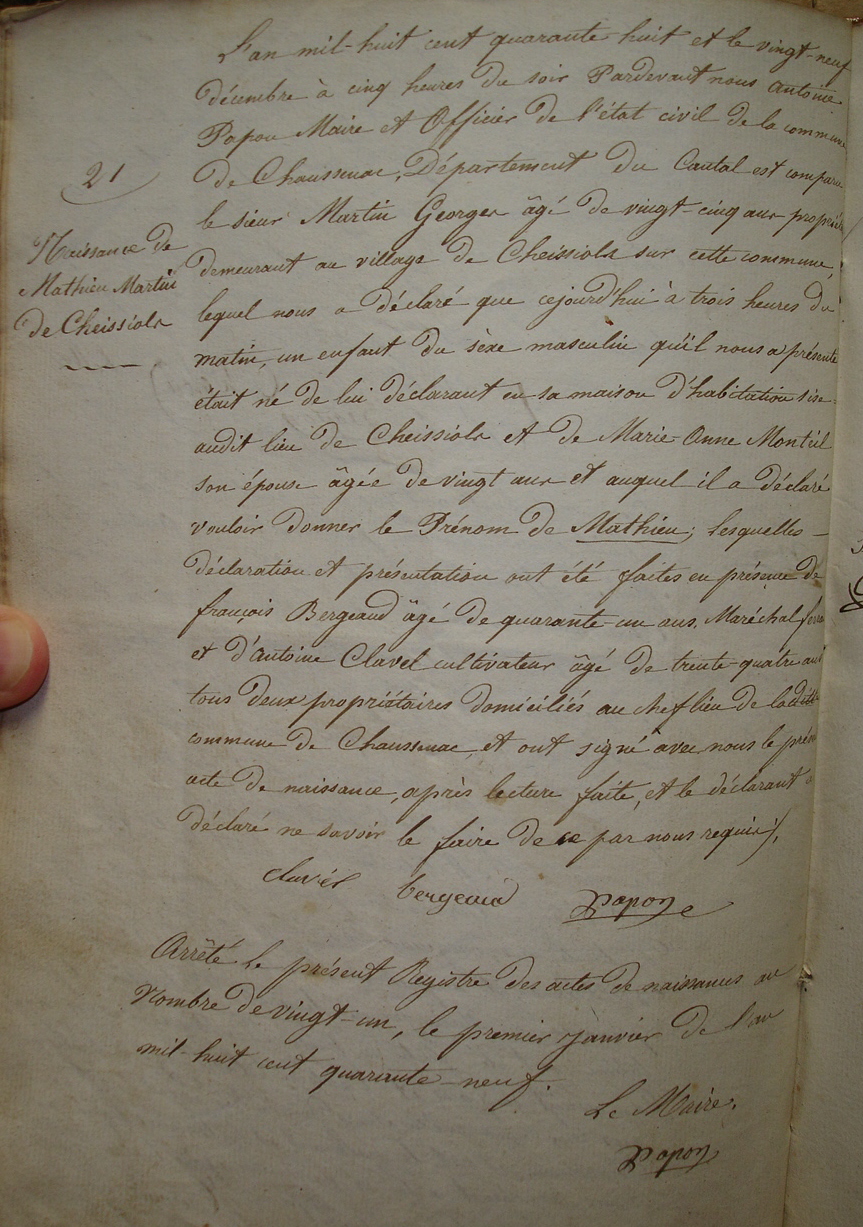 21
Naissance de
Mathieu Martin
de Cheissiols
L'an mil-huit cent quarante-huit et le vingt-neuf
décembre à cinq heures du soir Pardevant nous Antoine
Papon Maire et Officier de l'état civil de la commune
de Chaussenac, Département du Cantal est comparu
le sieur Martin Georges âgé de vingt-cinq ans propriét
demeurant au village de Cheissiols sur cette commune,
lequel nous a déclaré que cejourd'hui à trois heures du
matin, un enfant du sèxe masculin qu'il nous a présenté
était né de lui déclarant en sa maison d'habitation sise
audit lieu de Cheissiols et de Marie-Anne Monteil
son épouse âgée de vingt ans et auquel il a déclaré
vouloir donner le Prénom de Mathieu; lesquelles
déclaration et présentation ont été faites en présence de
françois Bergeaud âgé de quarante-un ans, Maréchal ferra
et d'Antoine Clavel cultivateur âgé de trente-quatre ans
tous deux propriétaires domiciliés au chef lieu de ladite
commune de Chaussenac, et ont signé avec nous le prése
acte de naissance, après lecture faite, et le déclarant a
déclaré ne savoir le faire de ce par nous requis,
bergeaud Papon
Arrêté le présent Registre des actes de naissances au
Nombre de vingt-un, le premier janvier de l'an
mil-huit cent quarante-neuf.
Le Maire,
Papon